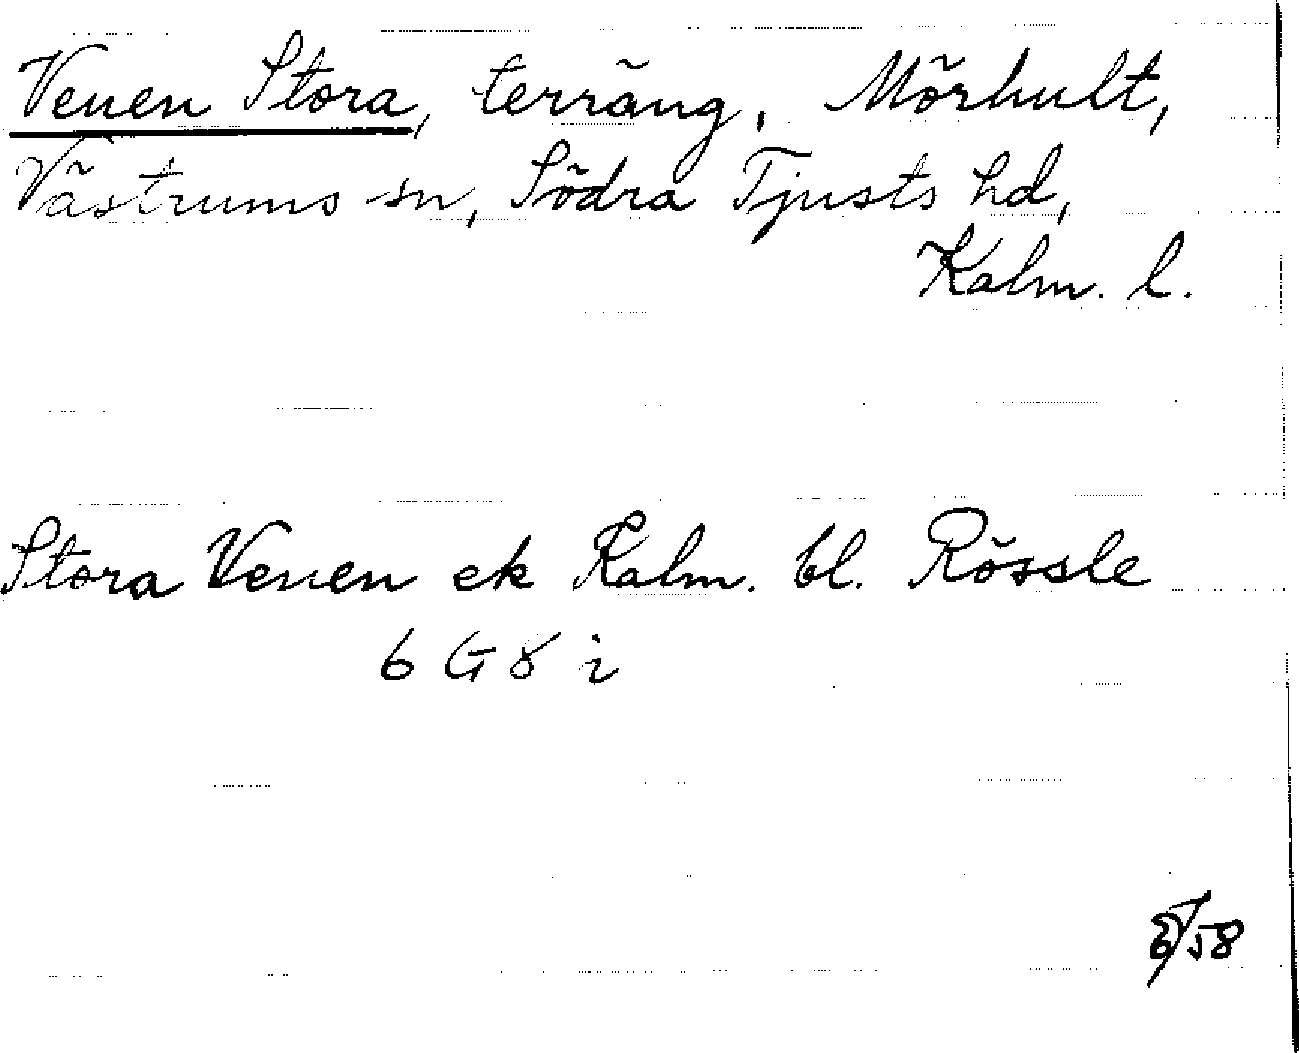 Venen Stora, terräng, Mörhult,
Västrums sn, Södra Tjusts hd,
Kalm. l.
Stora Venen ek Kalm. bl. Rössle
6 G 8 i
/58